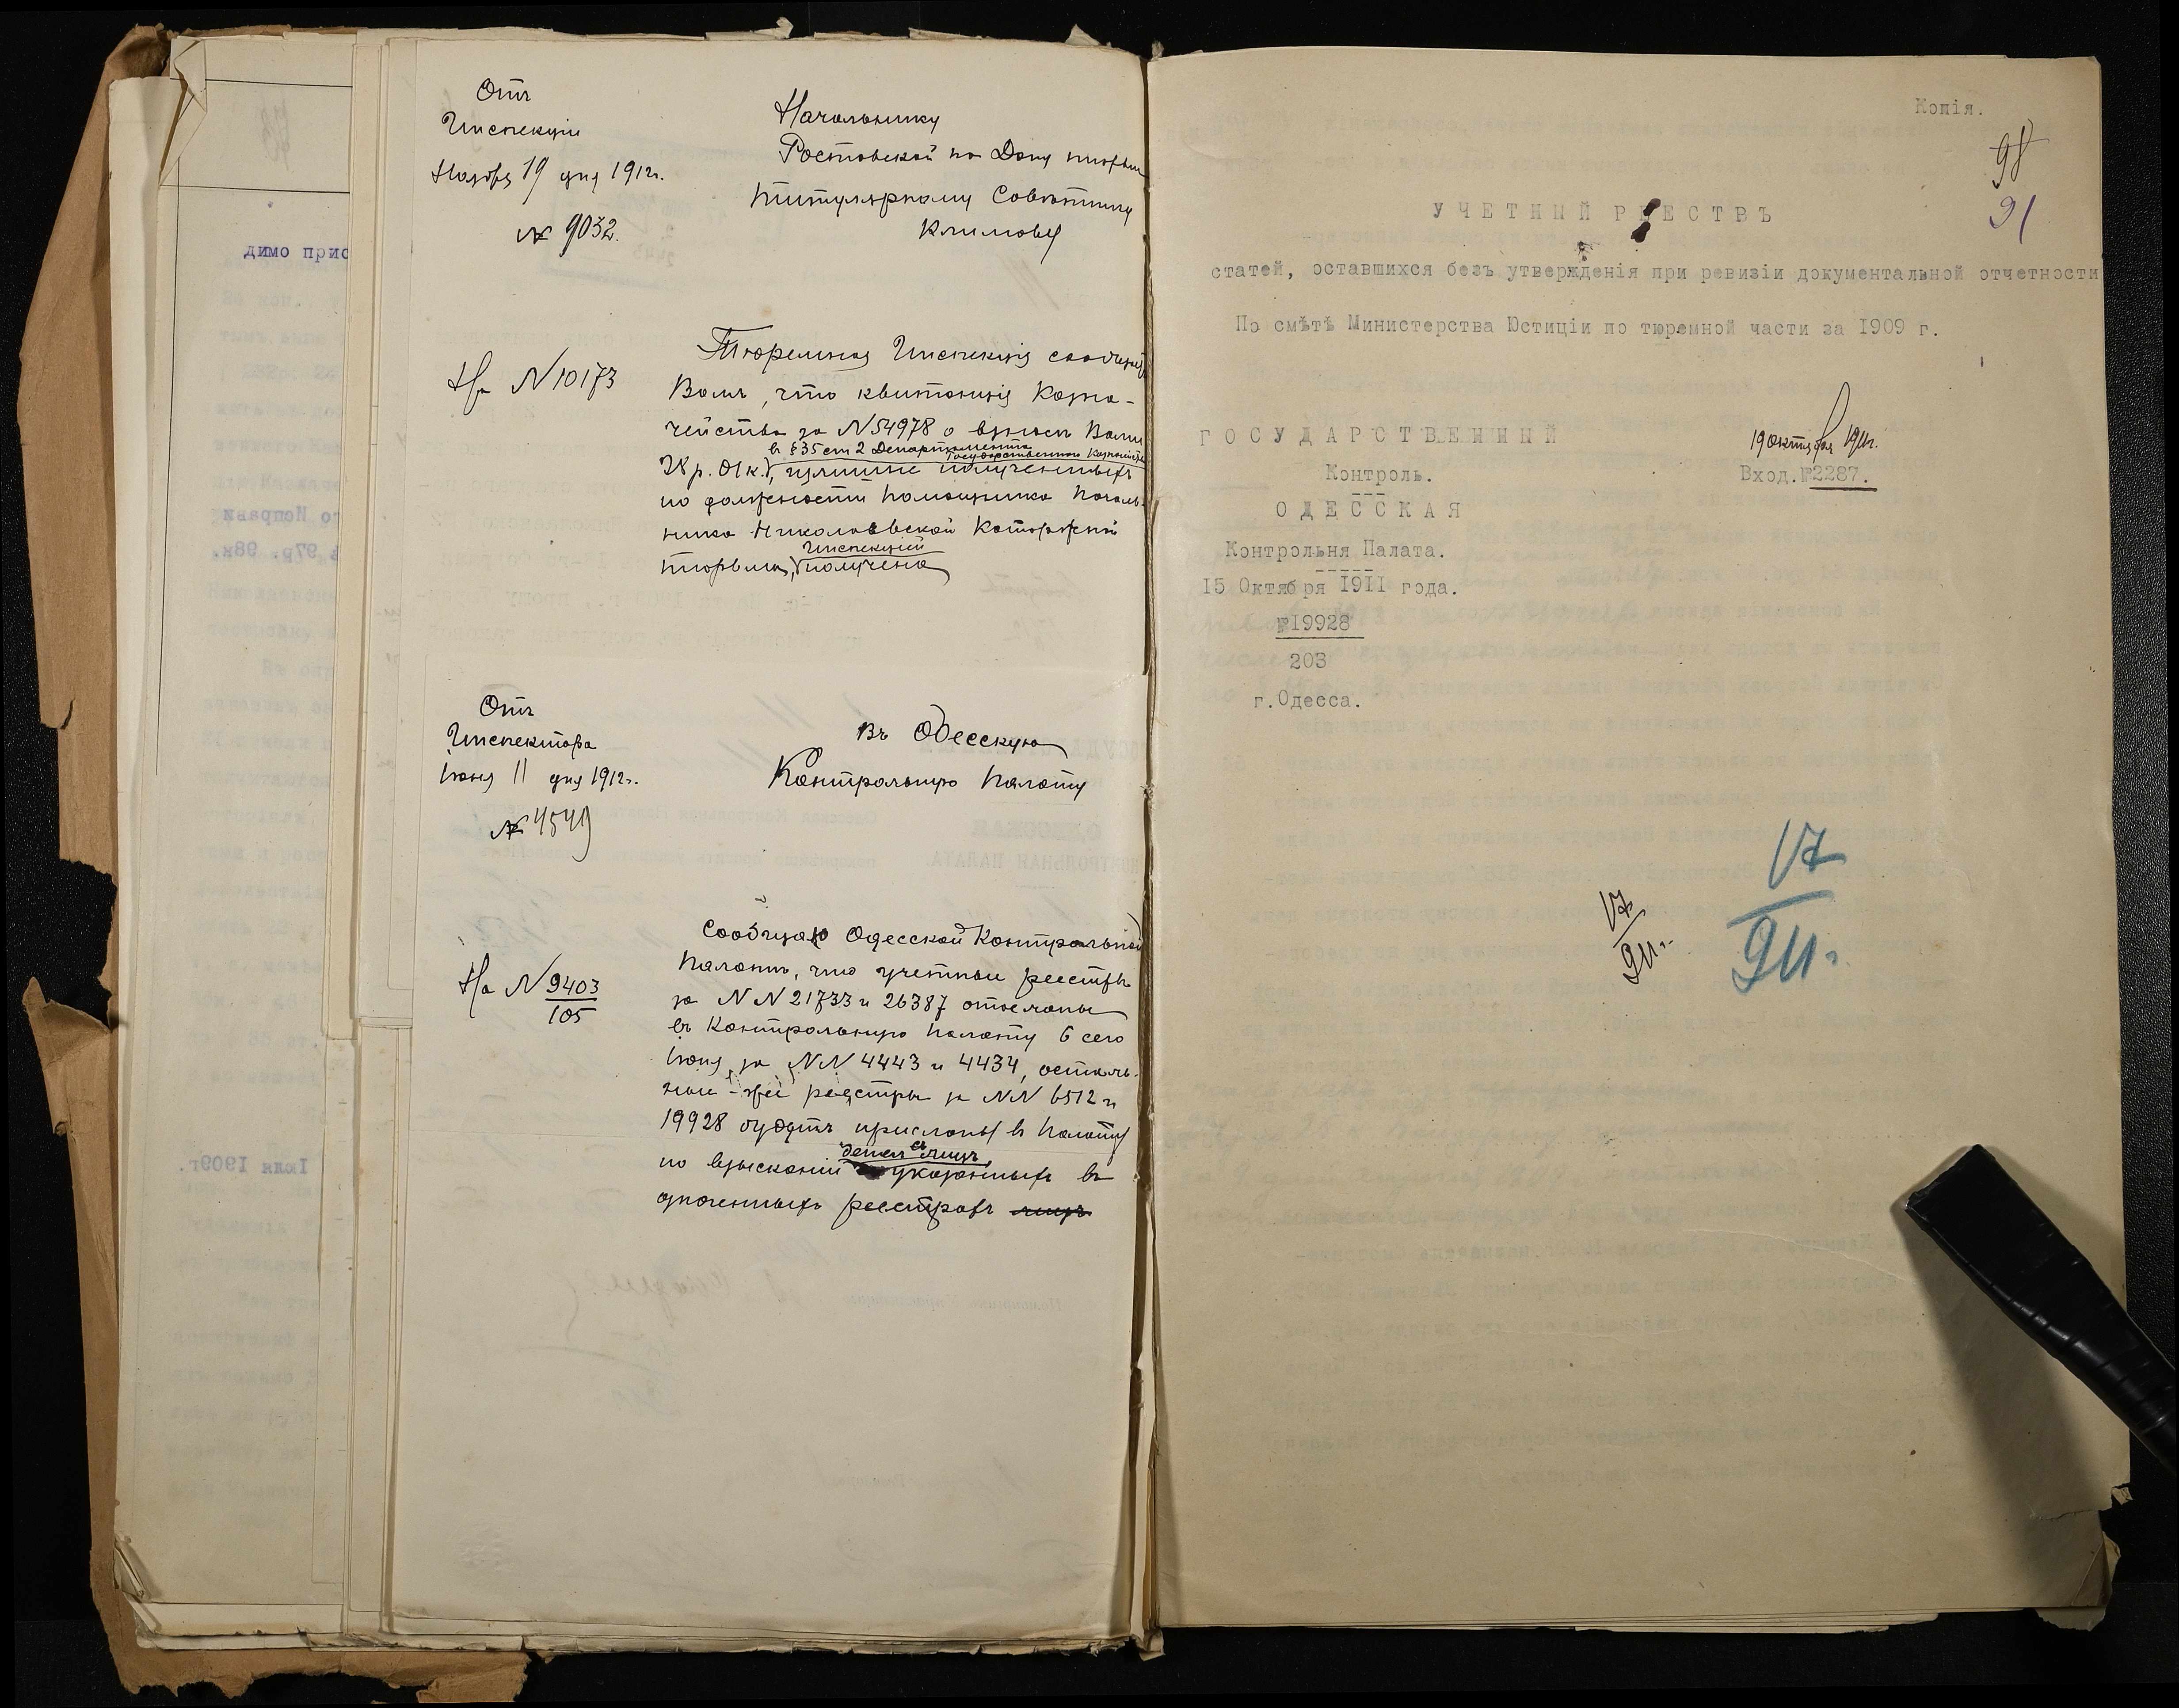 димо прис
Отъ
Инспекціи
Ноября 19 дня 1912 г.
№ 9032.
Начальнику
Ростовской на Дону тюрьмы
Титулярному Совѣтнику
Климову
На № 10173
Тюремная Инспекція сообщаетъ
Вамъ, что квитанція Казна-
чейства за № 54978 о взносѣ Вами
в § 35 ст 2 Департамента
Государственнаго Казначейства
28 р. 01 к., излишне полученныхъ
по должности Помощника Началь-
ника Николаевской Каторжной
Инспекціей
тюрьмы, получена
Отъ
Инспектора
Іюня 11 дня 1912 г.
№ 4549
Въ Одесскую
Контрольную Палату
На № 9403
105
Сообщаю Одесской Контрольной
Палатѣ, что учетные реестры
за №№ 21733 и 26387 отосланы
въ Контрольную Палату 6 сего
Іюня за №№ 4443 и 4434, осталь-
ные-же реестры за №№ 6512 и
19928 будутъ присланы въ Палату
денегъ съ лицъ,
по взысканіи указанныхъ въ
означенныхъ реестрахъ лицъ
Копія.
98
91
УЧЕТНЫЙ РЕЕСТРЪ
статей, оставшихся безъ утвержденія при ревизіи документальной отчетности
По смѣтѣ Министерства Юстиціи по тюремной части за 1909 г.
ГОСУДАРСТВЕННЫЙ
Контроль.
ОДЕССКАЯ
Контрольня Палата.
15 Октября 1911 года.
№19928
203
г.Одесса.
19 октября 1911г.
Вход.№2287.
17
911г.
17
911г.